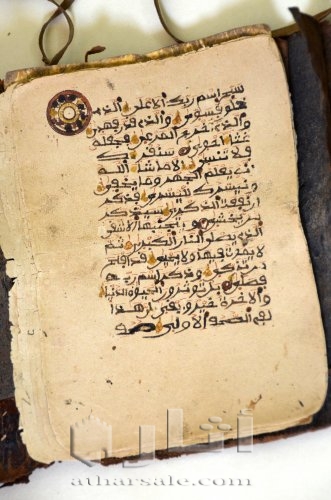 سبح اسم ربك الاعلى الذي
خلق فسوى والذي قدر فهدى
والذي اخرج المرعى فجعله
غثاء احوى سنقرئك
فلا تنسى الا ما شاء الله
انه يعلم الجهر وما يخفى
ونيسرك لليسرى فذكر
ان نفعت الذكرى سيذكر
من يخشى ويتجنبها الاشقى
الذي يصلى النار الكبرى ثم
لا يموت فيها ولا يحيى قد افلح
من تزكى وذكر اسم ربه
فصلى بل تؤثرون الحيوة الدنيا
والاخرة خير وابقى ان هذا
لفي الصحف الاولى صحف
atharsale.com